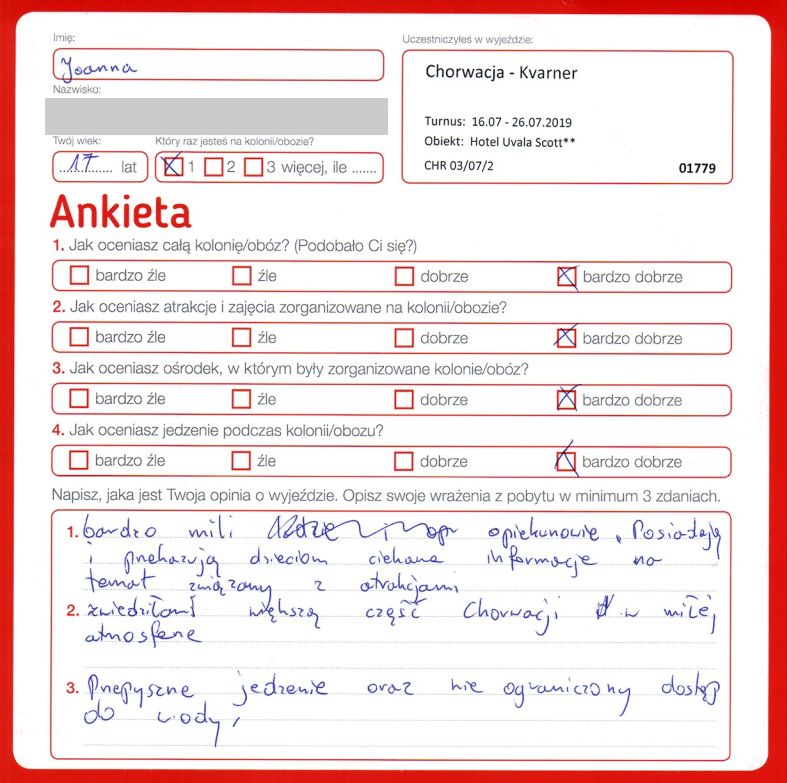 Imię:
Joanna
Nazwisko:
Twój wiek:
17 lat
Który raz jesteś na kolonii/obozie?
1 2 3 więcej, ile .......
Uczestniczyłeś w wyjeździe:
Chorwacja - Kvarner
Turnus: 16.07 - 26.07.2019
Obiekt: Hotel Uvala Scott**
CHR 03/07/2 01779
Ankieta
1. Jak oceniasz całą kolonię/obóz? (Podobało Ci się?)
bardzo źle źle dobrze bardzo dobrze
2. Jak oceniasz atrakcje i zajęcia zorganizowane na kolonii/obozie?
bardzo źle źle dobrze bardzo dobrze
3. Jak oceniasz ośrodek, w którym były zorganizowane kolonie/obóz?
bardzo źle źle dobrze bardzo dobrze
4. Jak oceniasz jedzenie podczas kolonii/obozu?
bardzo źle źle dobrze bardzo dobrze
Napisz, jaka jest Twoja opinia o wyjeździe. Opisz swoje wrażenia z pobytu w minimum 3 zdaniach.
1. bardzo mili opiekunowie. Posiadają
i przekazują dzieciom ciekawe informacje na
temat związany z atrakcjami
2. zwiedziłam większą część Chorwacji w miłej
atmosferze
3. Przepyszne jedzenie oraz nie ograniczony dostęp
do wody,